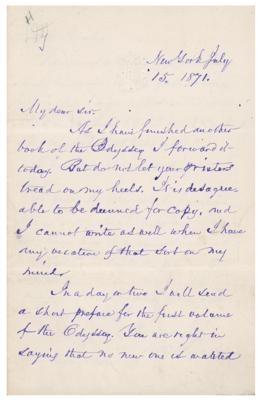 New York July
15. 1871.
My dear sir.
As I have finished another
book of the Odyssey I forward it
today. But do not let your printers
tread on my heels. It is disagree-
able to be dunned for copy, and
I cannot write as well when I have
any vexation of that sort on my
mind.
In a day or two I will send
a short preface for the first volume
of the Odyssey. You are right in
saying that no new one is wanted